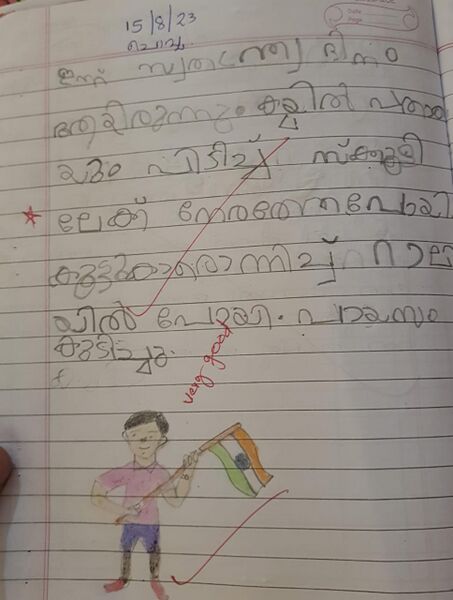 15/8/23
ചൊവ്വ
ഇന്ന് സ്വതന്ത്ര്യ ദിനം
ആയിരുന്നു. കയ്യിൽ പതാക
യും പിടിച്ച് സ്കൂളി
ലേക്ക് നേരത്തെപോയി
കൂട്ടുകാരൊന്നിച്ച് റാല
യിൽ പോയി. പായസം
കുടിച്ചു.
very good